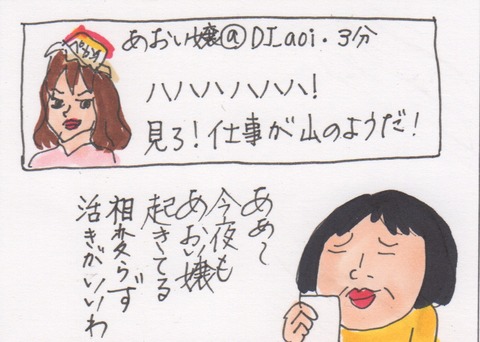 あおい嬢@DI_aoi・3分
ハハハハハハ!
見ろ!仕事が山のようだ!
ああ〜
今夜も
あおい嬢
起きてる
相変らず
活きがいいわ